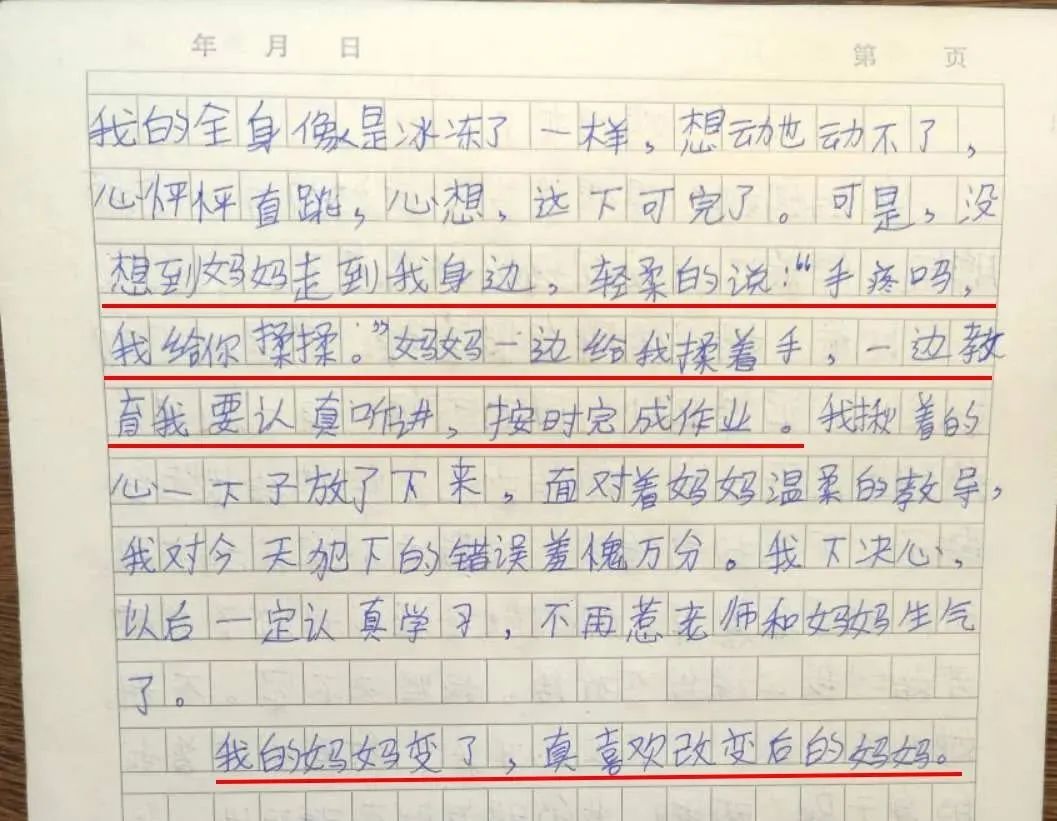 年 月 日
第 页
我的全身像是冰冻了一样，想动也动不了，
心怦怦直跳，心想，这下可完了。可是，没
想到妈妈走到我身边，轻柔的说：“手疼吗，
我给你揉揉。”妈妈一边给我揉着手，一边教
育我要认真听讲，按时完成作业。我揪着的
心一下子放了下来，面对着妈妈温柔的教导，
我对今天犯下的错误羞愧万分。我下决心，
以后一定认真学习，不再惹老师和妈妈生气
了。
我的妈妈变了，真喜欢改变后的妈妈。